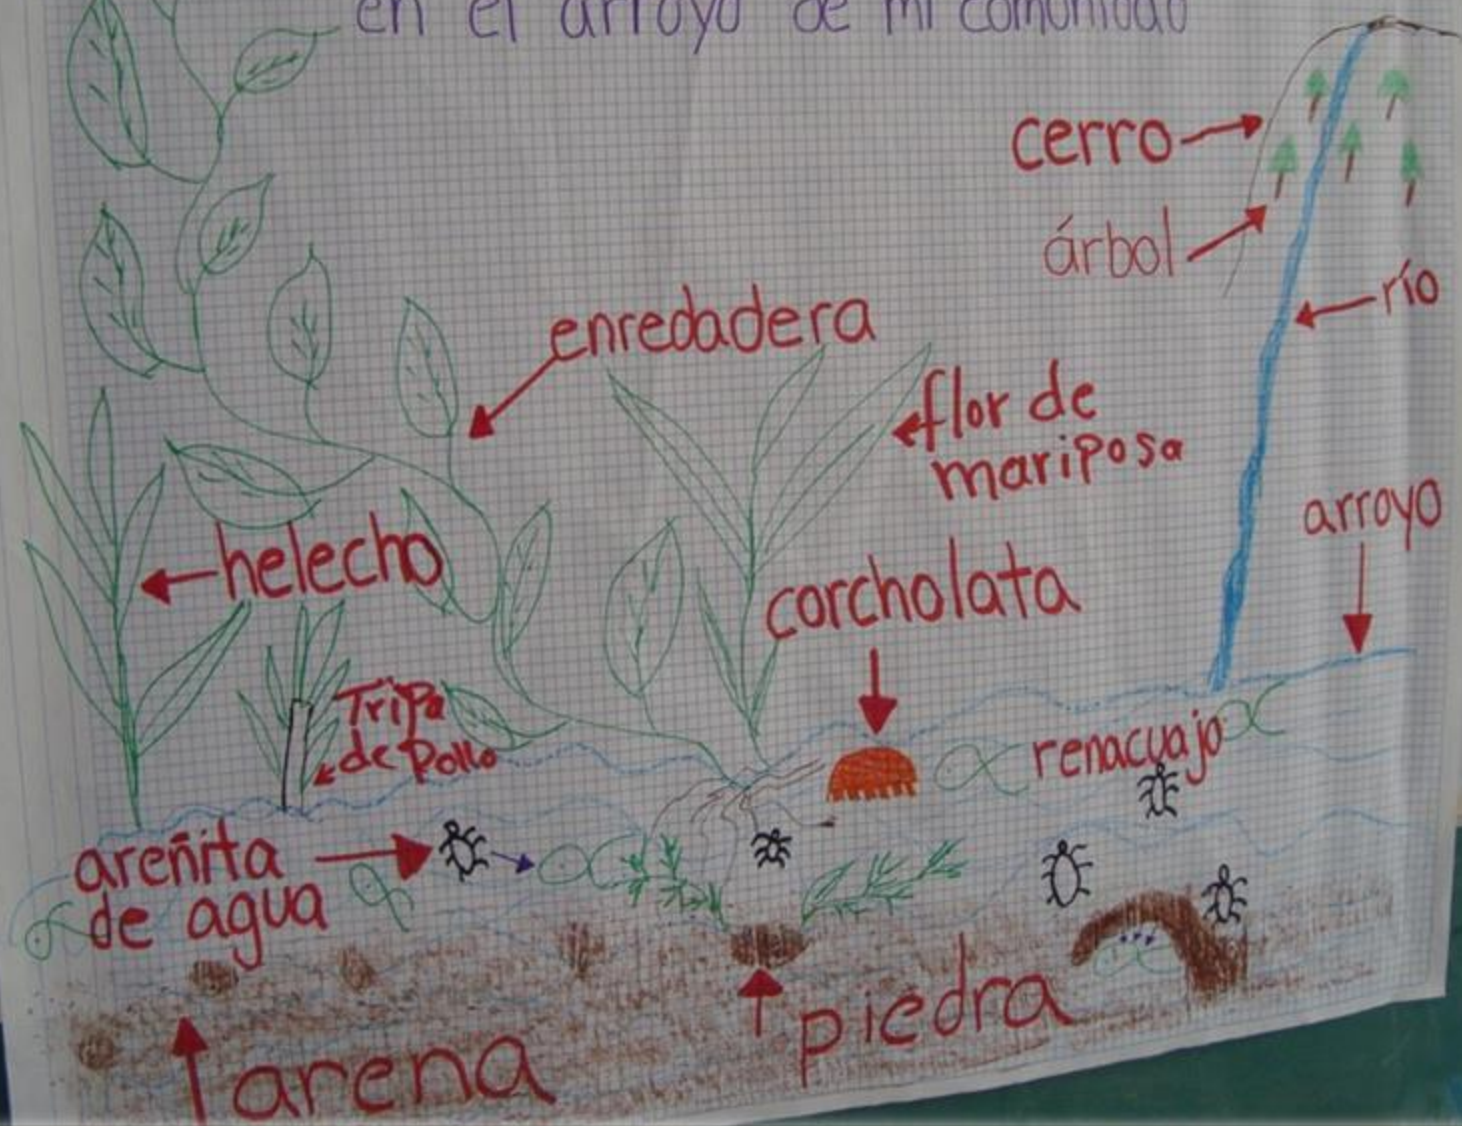 en el arroyo de mi comunidad
cerro
árbol
río
enredadera
flor de
mariposa
arroyo
helecho
corcholata
Tripa
de Pollo
renacuajo
areñita
de agua
piedra
arena